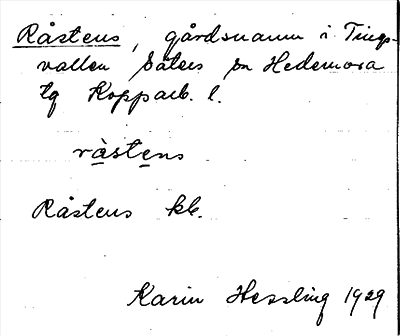 Råstens, gårdsnamn i Tings-
vallen Säters sn Hedemora
tg Kopparb. l.
råstens
Råstens kb.
Karin Hessling 1929